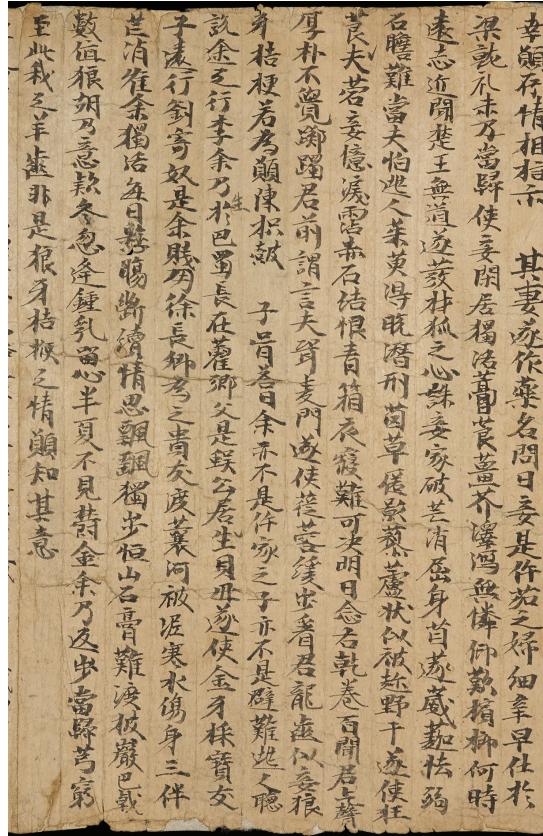 幸願存情相指示　其妻遂作藥名問曰妾是仵茄之婦細辛早仕於
梁就礼未及當歸使妾閑居獨活膏莨薑芥澤瀉無憐仰歎檳榔何時
遠志近聞楚王無道遂發材狐之心誅妾家破芒消屈身苜遂葳蕤怯弱
石膽難當夫怕逃人茱萸得脫潛刑茵草匿影藜蘆狀似被趁野干遂使狂
夫莨菪妾憶淚霑赤石結恨青箱夜寢難可決明日念舌乾卷百聞君乞聲
厚朴不覺躑躅君前謂言夫聟麦門遂使蓯蓉緩步看君龍齒似妾狼
牙桔梗若為願陳枳殼　子胥荅曰余亦不是仵家之子亦不是避難逃人聽
說余之行李余乃生於巴蜀長在藿鄉父是蜈公居生貝母遂使金牙採寶支
子遠行劉寄奴是余賤朋徐長卿為之貴友渡蘘河被泥寒水傷身三伴
芒消唯余獨活每日懸腸斷續情思飄颻獨步恒山石膏難渡披巖巴戟
數值狼胡乃意款冬忽逢鍾乳留心半夏不見鬱金余乃返步當歸芎窮
至此我之羊齒非是狼牙桔梗之情願知其意